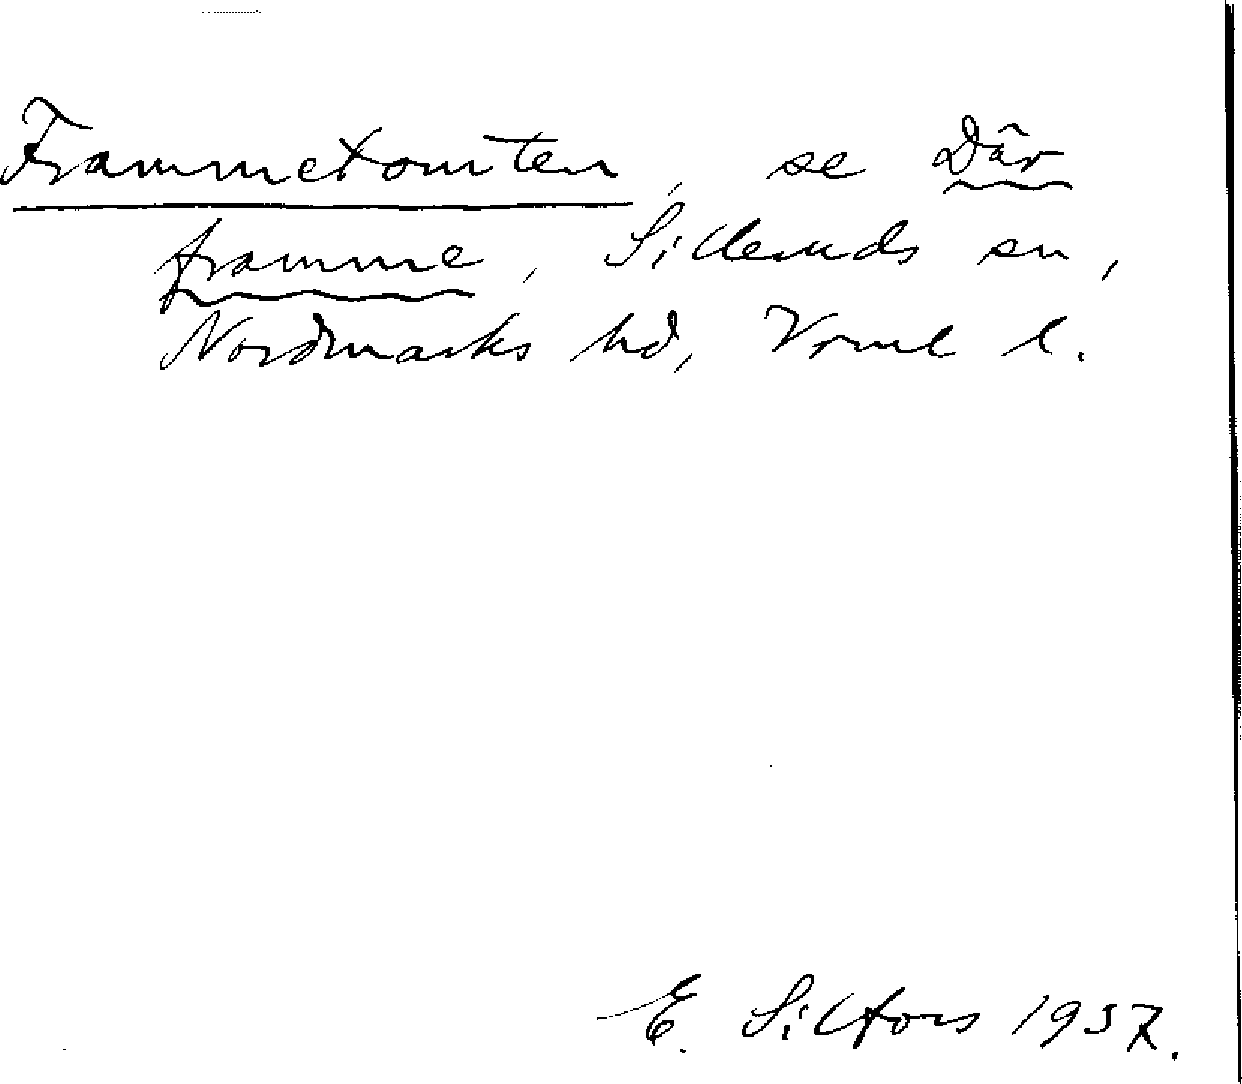 Frammetomten, se Där
framme, Silleruds sn,
Nordmarks hd, Vrml l.
E. Silfors 1937.